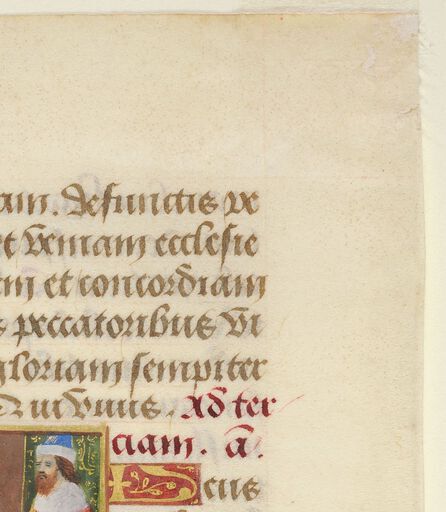 am. defunctis ve
et veniam ecclesie
em et concordiam
s peccatoribus vi
gloriam sempiter
Ad ter
ciam. a.
eus